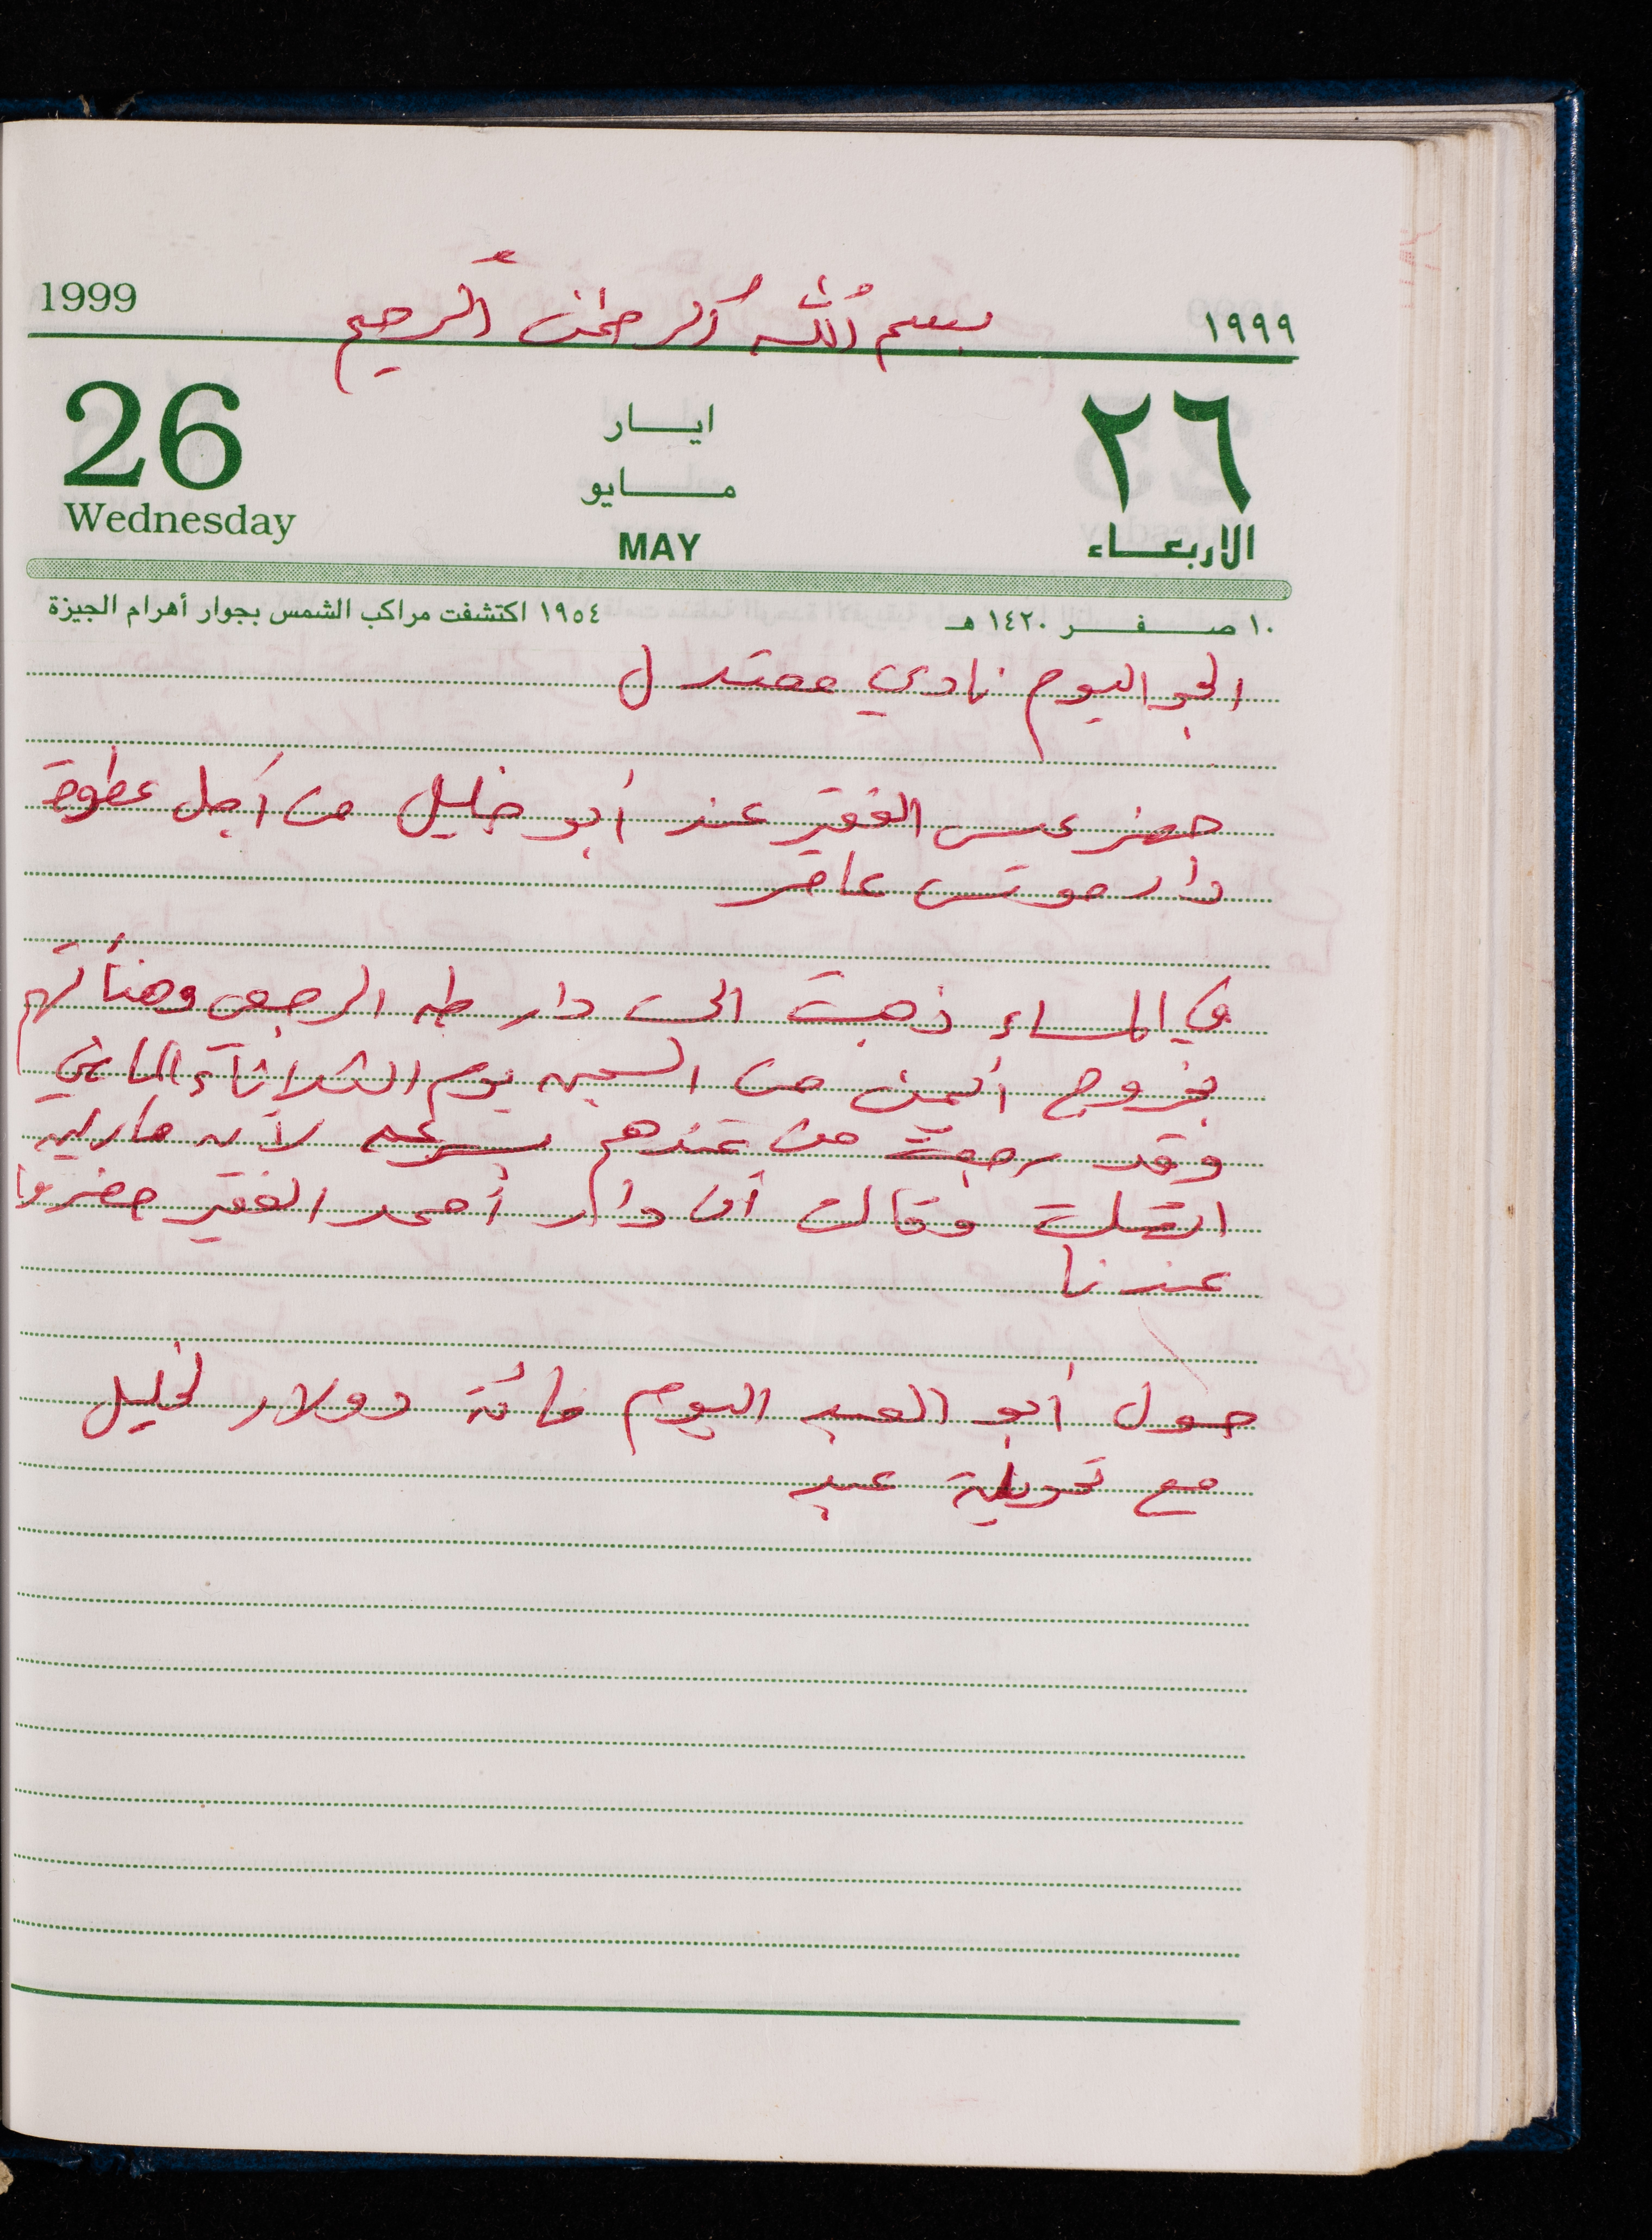 بسم الله الرحمن الرحيم
1999 ١٩٩٩
26 ايار ٢٦
مايو
Wednesday MAY الاربعاء
١٠ صفر ١٤٢٠ هـ ١٩٥٤ اكتشفت مراكب الشمس بجوار أهرام الجيزة
الجو اليوم نادي معتدل
حضر عيسى الفقير عند أبو خليل من أجل عطوة
دار موسى عامر
في المساء ذهبت الى دار طه الرجعي وهنأتهم
بخروج أيمن من السجن يوم الثلاثاء الماضي
وقد رجعت من عندهم بسرعه لأن ماريه
اتصلت وقالت أن دار أحمد الفقير حضروا
عندنا
حول أبو العبد اليوم مائة دولار لخليل
مع تحويلة عبد